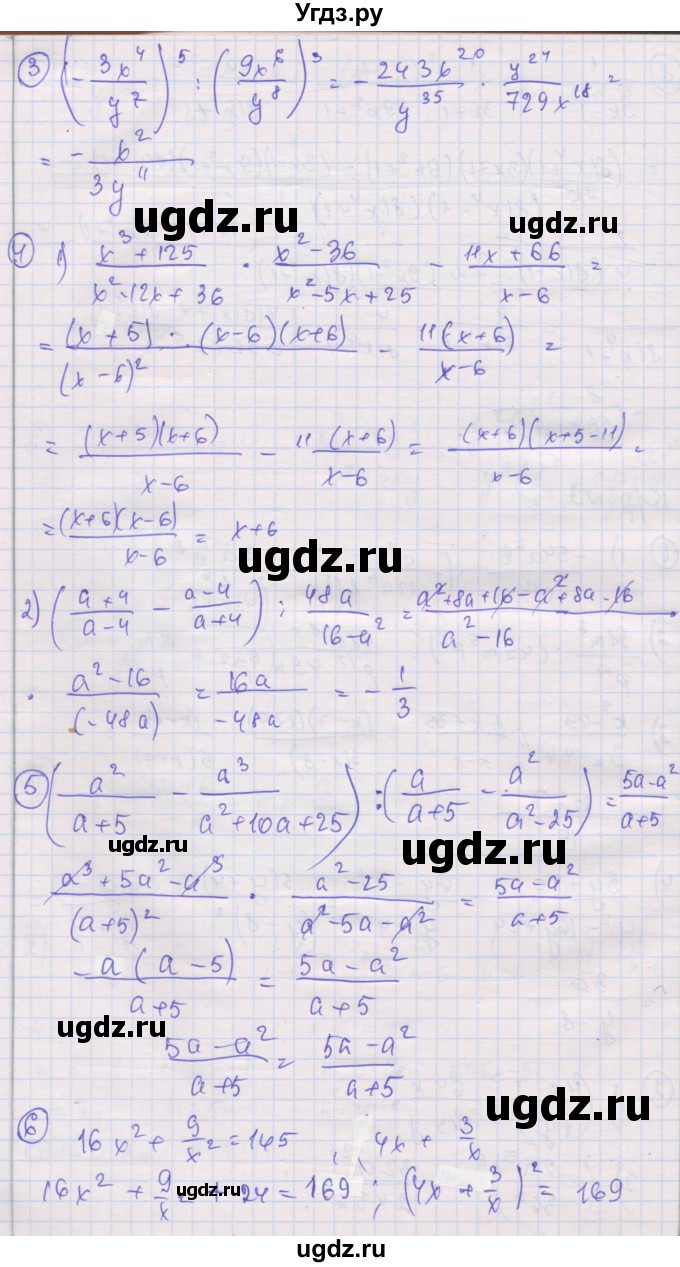 Угдз.ру
③ (- 3x⁴/y⁷)⁵ : (9x⁶/y⁸)³ = - 243x²⁰/y³⁵ · y²⁴/729x¹⁸ =
= - x²/3y¹¹
ugdz.ru ugdz.ru
④ 1) x³+125/x²-12x+36 · x²-36/x²-5x+25 - 11x+66/x-6 =
= (x+5) · (x-6)(x+6)/(x-6)² - 11(x+6)/x-6 =
= (x+5)(x+6)/x-6 - 11(x+6)/x-6 = (x+6)(x+5-11)/x-6 =
ugdz.ru
= (x+6)(x-6)/x-6 = x+6
ugdz.ru
2) (a+4/a-4 - a-4/a+4) : 48a/16-a² = a²+8a+16-a²+8a-16/a²-16 ·
· a²-16/(-48a) = 16a/-48a = - 1/3
ugdz.ru
⑤ (a²/a+5 - a³/a²+10a+25) : (a/a+5 - a²/a²-25) = 5a-a²/a+5
ugdz.ru ugdz.ru
a³+5a²-a³/(a+5)² · a²-25/a²-5a-a² = 5a-a²/a+5
-a(a-5)/a+5 = 5a-a²/a+5
ugdz.ru ugdz.ru
5a-a²/a+5 = 5a-a²/a+5
⑥ 16x² + 9/x² = 145 , 4x + 3/x
ugdz.ru
16x² + 9/x² + 24 = 169 ; (4x + 3/x)² = 169
ugdz.ru
ugdz.ru